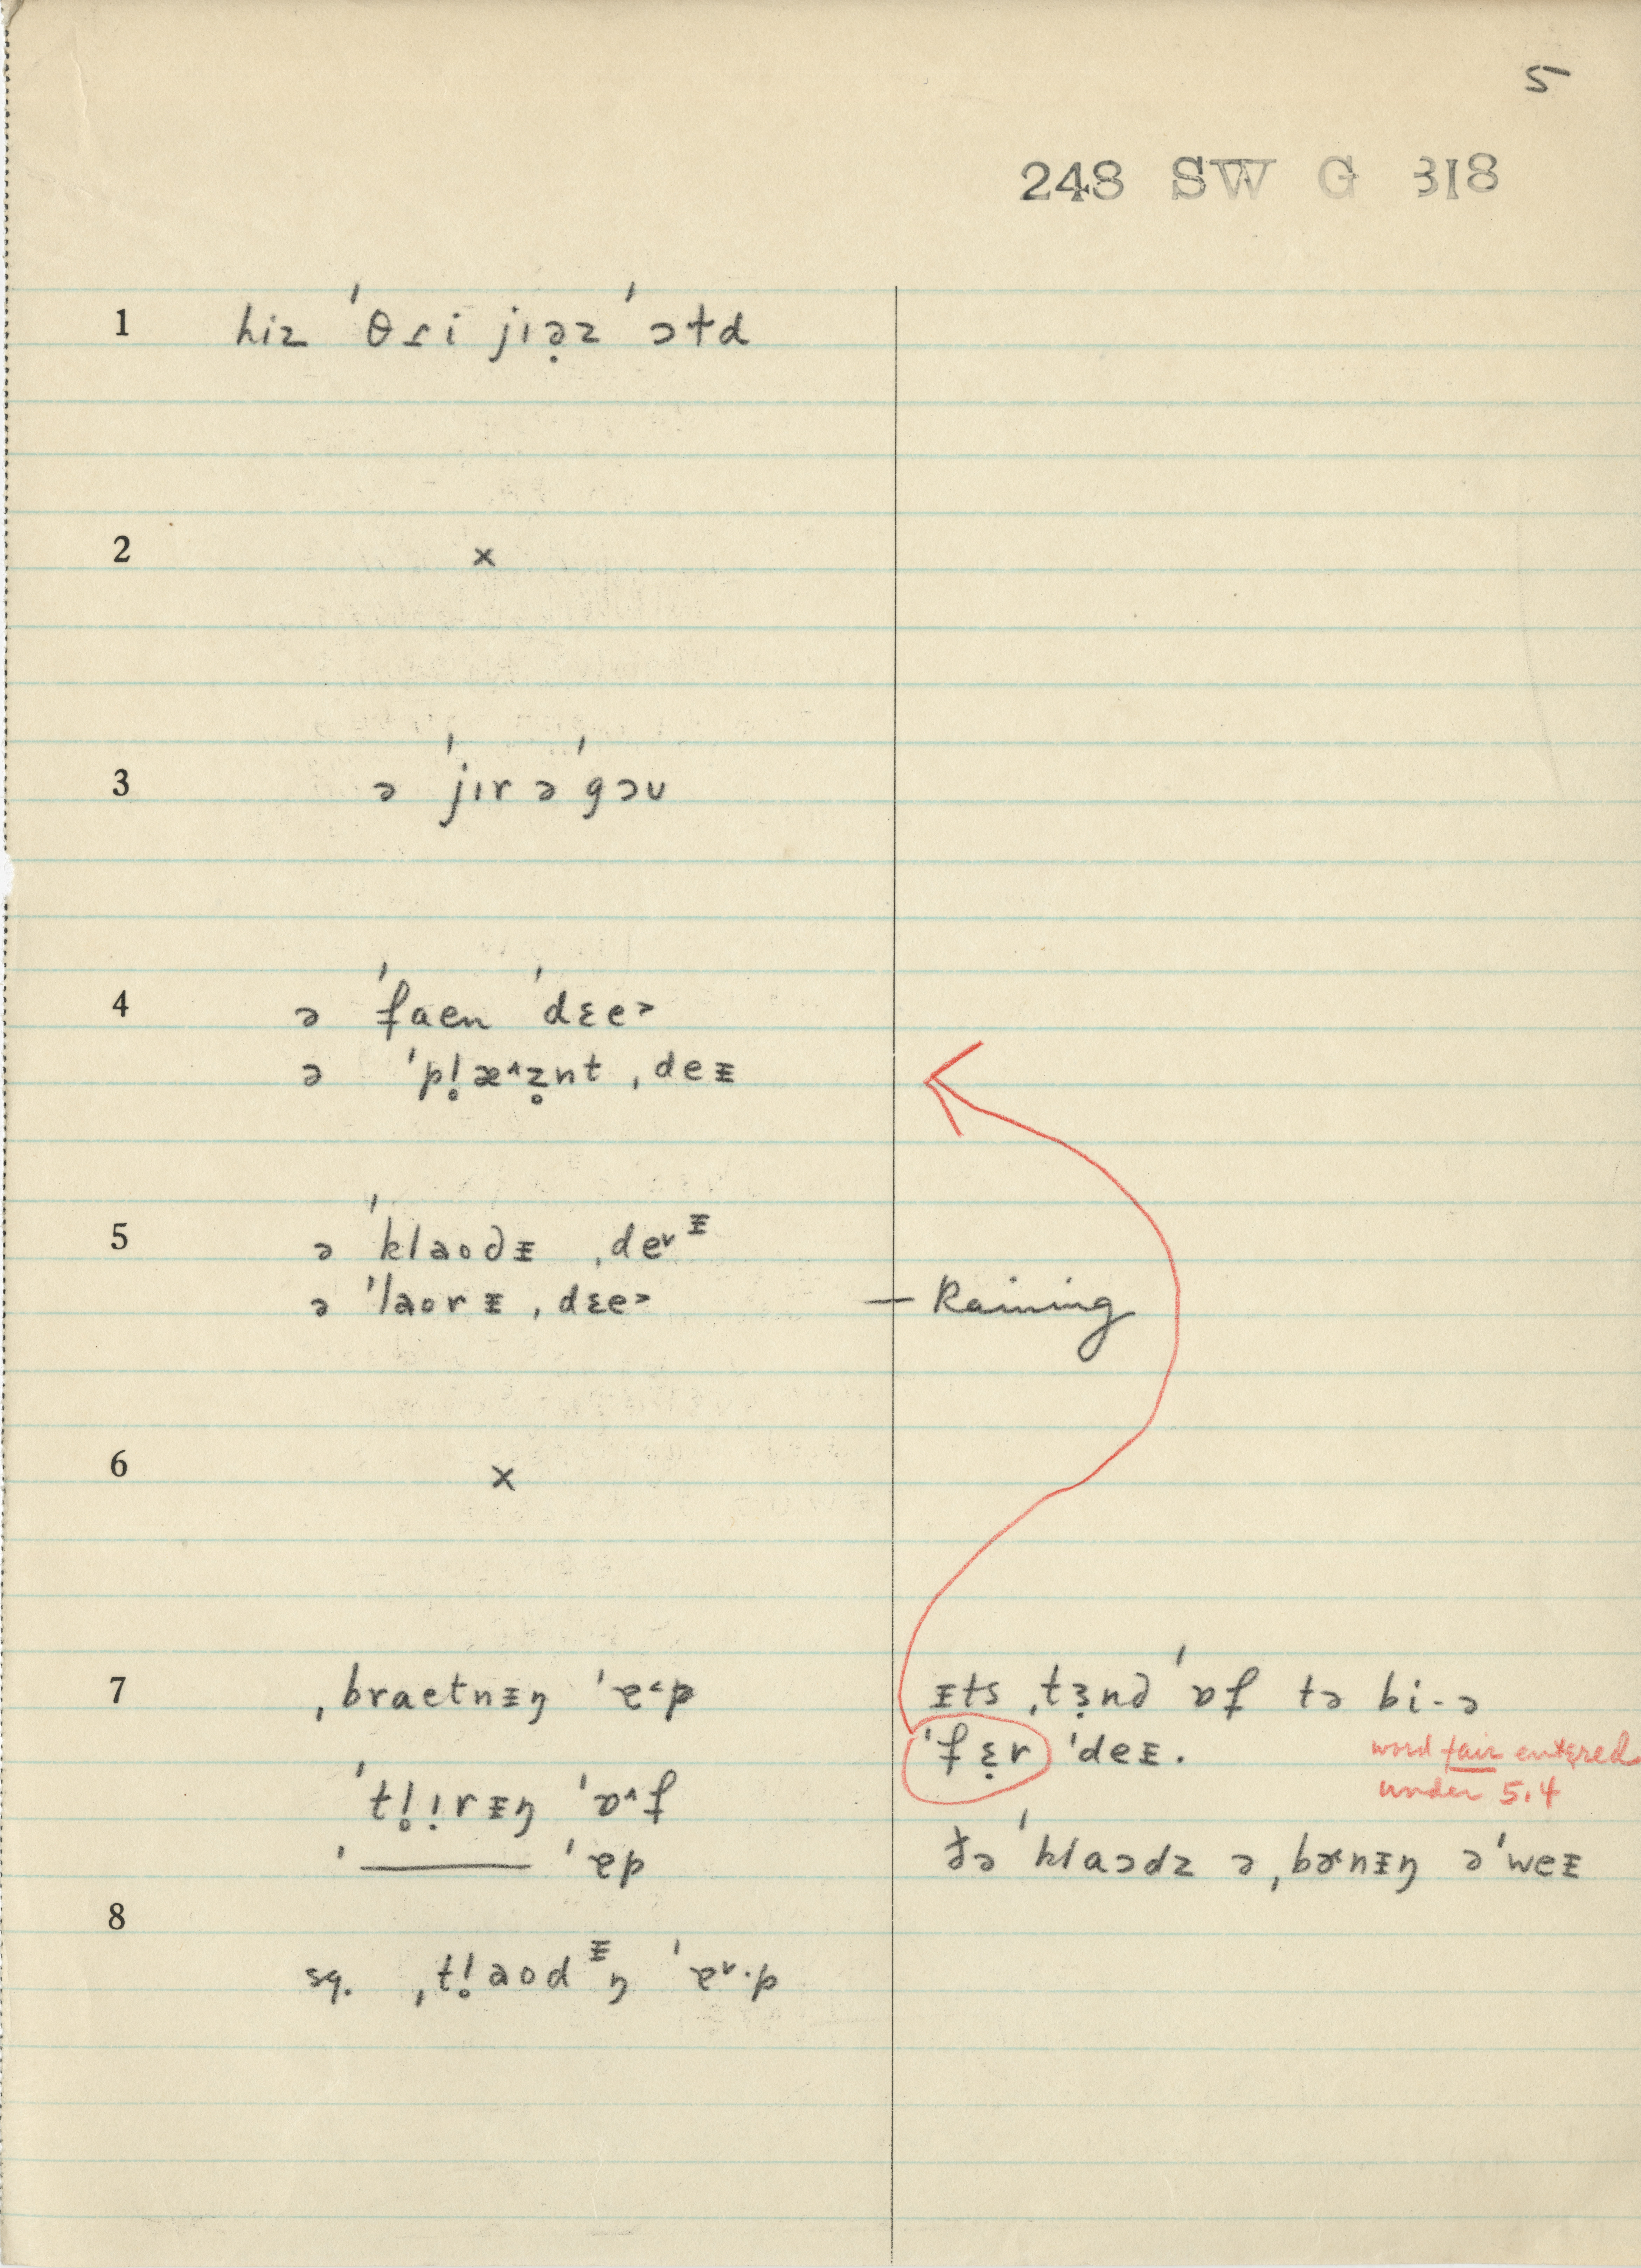 5
248 SW G 318
1 hiz ˈθɾi jɪə̣z ˈɔɫd
2 x
3 ə ˈjɪr əˈgɔʊ
4 ə ˈfaen ˈdɛe˃
ə ˈpl̥æ˄z̥n̩t ˌdeᵻ
5 ə ˈklaodᵻ ˌde˅ᵻ
ə ˈlaorᵻ ˌdɛe˃ — Raining
6 x
7 ˌbraetnᵻŋ ˈɐ˂p ᵻts ˌtɛ̣nd ˈɒf tə bi- ə
ˈfɛ̣r ˈdeᵻ. word fair entered
under 5.4
ˈtl̥ịrᵻŋ ˈɒ˄f
ˈ——— ˈɐp ðə ˈklaɔdz ə ˌbɚnᵻŋ əˈweᵻ
8
sq. ˌtl̥aodᵻŋ ˈɐ˅·p